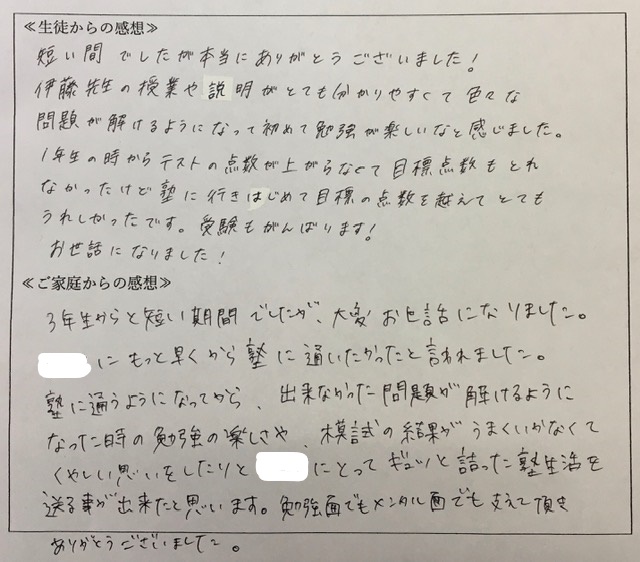 ≪生徒からの感想≫
短い間でしたが本当にありがとうございました!
伊藤先生の授業や説明がとても分かりやすくて色々な
問題が解けるようになって初めて勉強が楽しいなと感じました。
1年生の時からテストの点数が上がらなくて目標点数もとれ
なかったけど塾に行きはじめて目標の点数を越えてとても
うれしかったです。受験もがんばります!
お世話になりました!
≪ご家庭からの感想≫
3年生からと短い期間でしたが、大変お世話になりました。
にもっと早くから塾に通いたかったと言われました。
塾に通うようになってから、出来なかった問題が解けるように
なった時の勉強の楽しさや、模試の結果がうまくいかなくて
くやしい思いをしたりと にとってギュッと詰った塾生活を
送る事が出来たと思います。勉強面でもメンタル面でも支えて頂き
ありがとうございました。